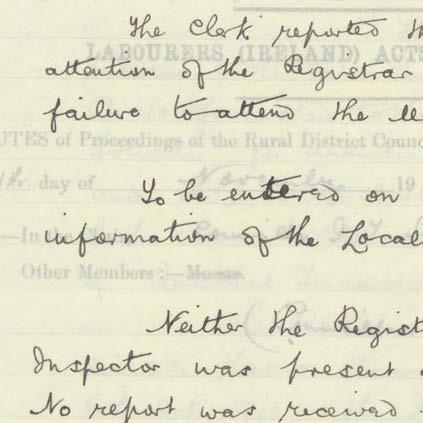 The Clerk reported th
LABOURERS (IRELAND) ACTS
attention of the Registrar
failure to attend the Me
UTES of Proceedings of the Rural District Counc
day of November 19
To be entered on
—In the
information of the Local
Other Members :—Messrs.
Neither the Regist
Inspector was present
No report was received